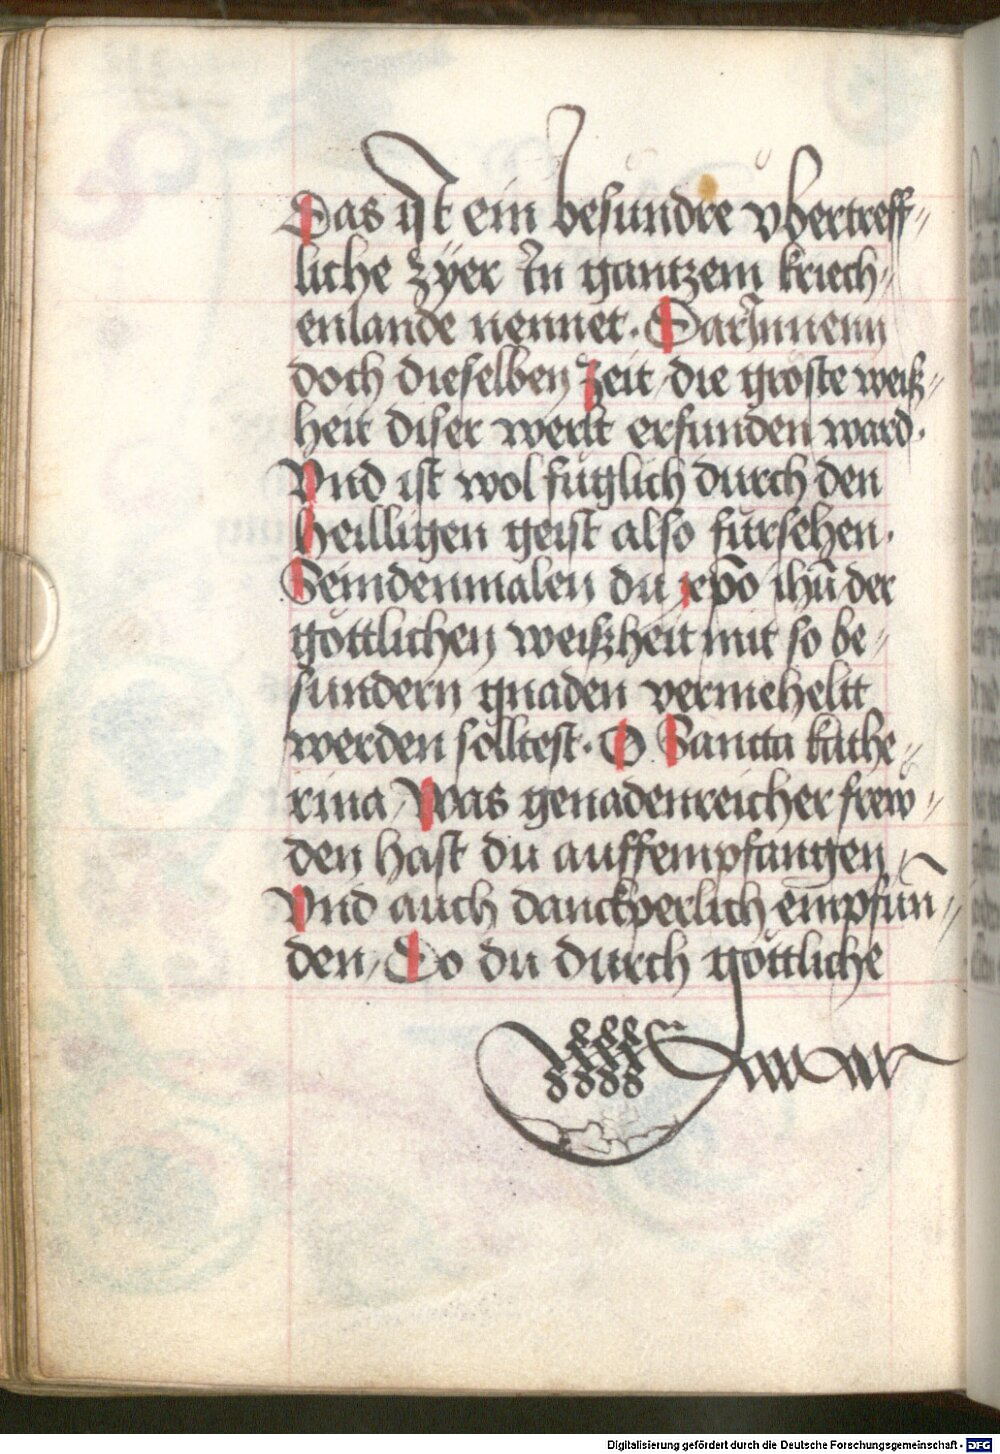 Das ist ein besundre vbertreff„
liche zÿer In gantzem kriech„
enlande nennet. DarJnnenn
doch dieselben zeit / die gröste weiß„
heit diser werlt erfunden ward.
Vnd ist wol füglich durch den
heilligen geist also fürsehen.
Seindenmalen du xp̄o ihū der
göttlichen weißheit mit so be„
sundern gnaden vermeheltt
werden solltest. O Sancta kathe„
rina / Was genadenreicher frew„
den hast du auffempfangen /
Vnd auch danckperlich em̄pfun̄„
den / Do du durch göttliche
Digitalisierung gefördert durch die Deutsche Forschungsgemeinschaft - DFG